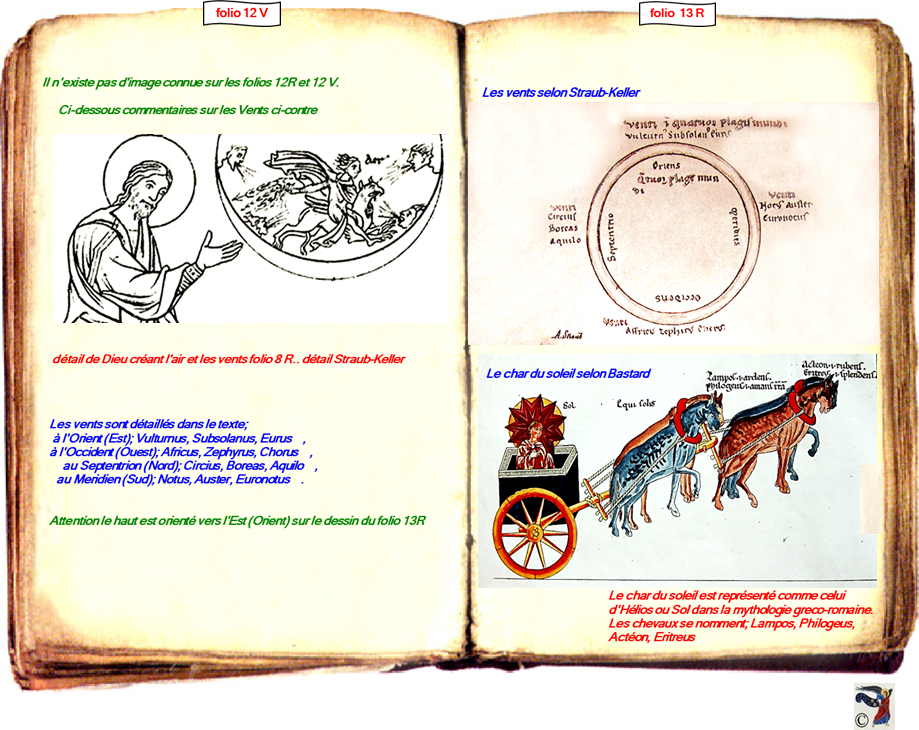 folio 12 V
Il n'existe pas d'image connue sur les folios 12R et 12 V.
Ci-dessous commentaires sur les Vents ci-contre
aer
détail de Dieu créant l'air et les vents folio 8 R.. détail Straub-Keller
Les vents sont détaillés dans le texte;
à l'Orient (Est); Vulturnus, Subsolanus, Eurus ,
à l'Occident (Ouest); Africus, Zephyrus, Chorus ,
au Septentrion (Nord); Circius, Boreas, Aquilo ,
au Meridien (Sud); Notus, Auster, Euronotus .
Attention le haut est orienté vers l'Est (Orient) sur le dessin du folio 13R
folio 13 R
Les vents selon Straub-Keller
Venti i quatuor plagis mundi
Vulturn' Subsolan' Eurus
Oriens
Q̄tuor plage mun
di
Venti
Circius
Boreas
Aquilo
Septentrio
Venti
Auster
Euronotus
Meridies
Occidens
Venti
Africus Zephirus
Le char du soleil selon Bastard
Acteon.i.rubens.
Eritreus.i.splendens.
Lampos.i.ardens.
philogeus.i.amans
Sol
Equi solis
Le char du soleil est représenté comme celui
d'Hélios ou Sol dans la mythologie greco-romaine.
Les chevaux se nomment; Lampos, Philogeus,
Actéon, Eritreus
©